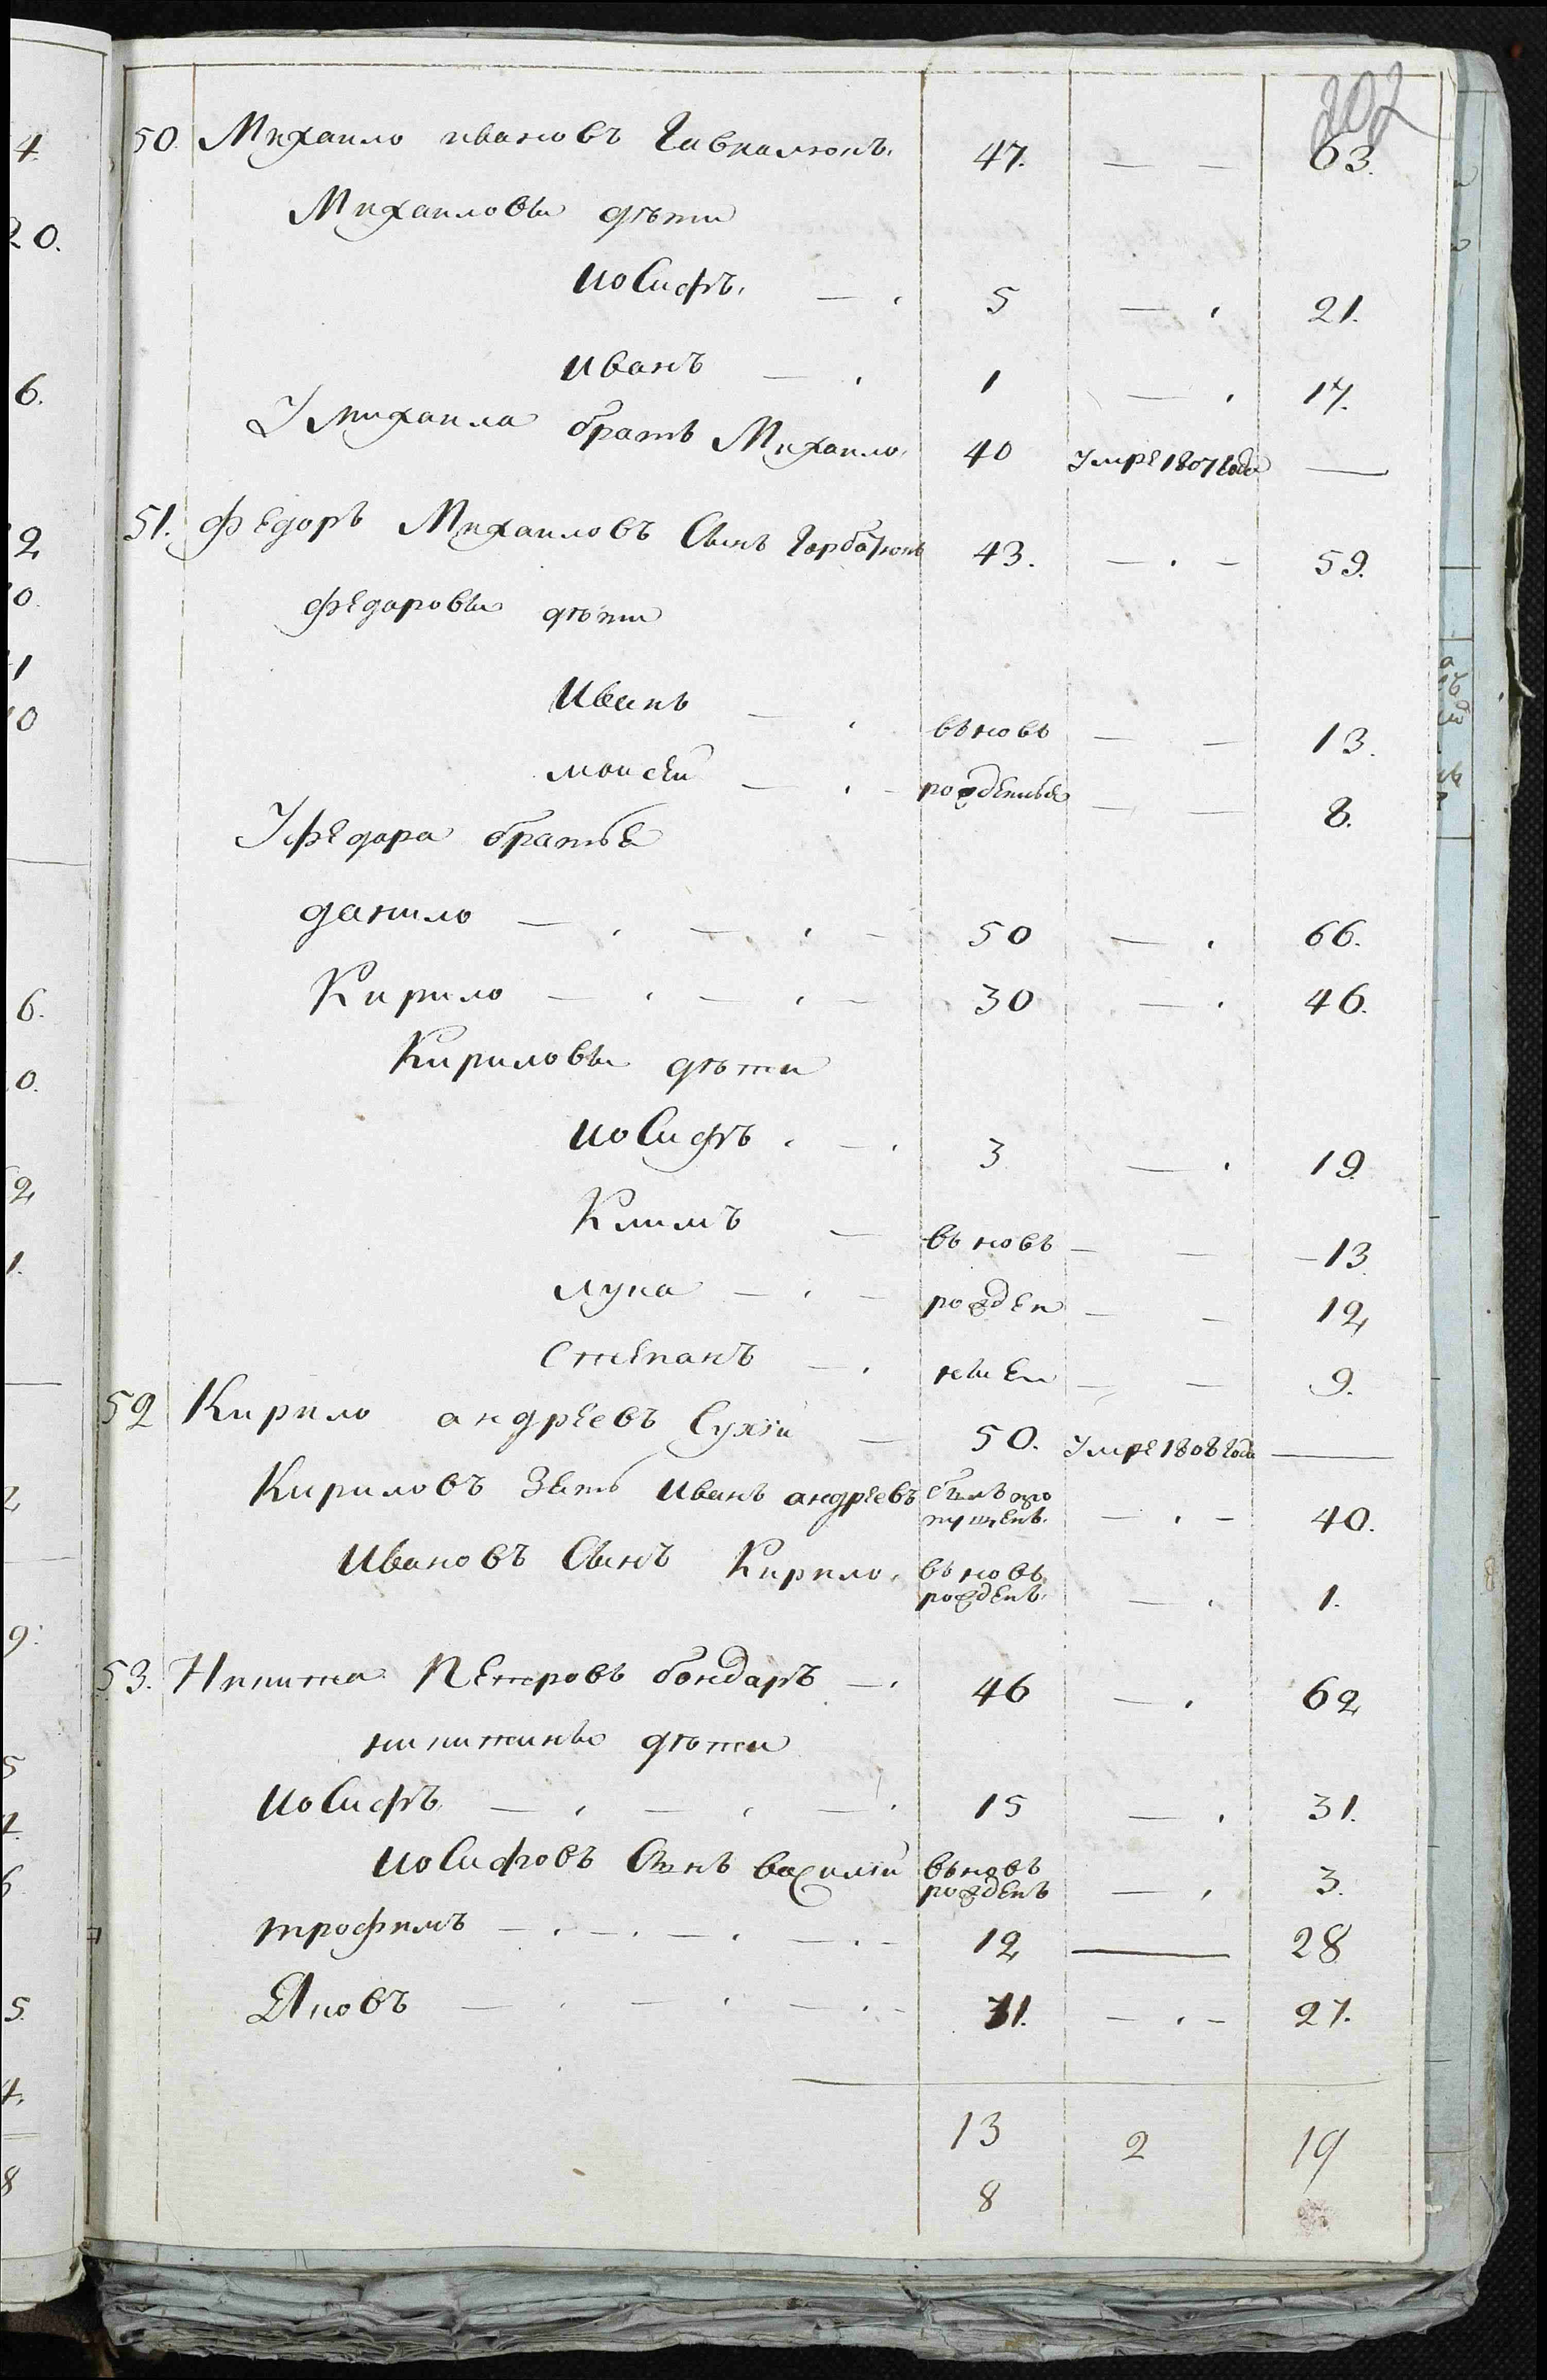 202
50. Михаило ивановъ Гаврилюкъ. 47. — — 63.
Михаиловы дѣти
иосифъ. — . 5 — . 21.
иванъ — . 1 — . 17.
У михаила братъ Михаило. 40 Умре 1807 Года —
51. Федоръ Михаиловъ Сынъ Горбатюкъ 43. — . — 59.
федаровы дѣти
Иванъ — . вьновь — — 13.
моисеи — . — рожденые — — 8.
У федора братье
данило — . — . — 50 — . 66.
Кирило — . — . — 30 — . 46.
Кириловы дѣти
иосифъ . — . 3 — . 19
Климъ — вьновь — — 13
лука — . — рожден — — 12
Степанъ — . ныеи — — 9.
52 Кирило андреевъ Сухіи — 50. Умре 1808 Года —
Кириловъ Зять иванъ андреевъ былъ про
пущенъ. — . — 40.
Ивановъ Сынъ Кирило. вьновь
рожденъ. — . 1.
53. Никита Петровъ бондаръ — . 46 — . 62
никитины дѣти
иосифъ — . — . — . 15 — . 31.
иосифовъ Сынъ василіи вьновь
рожденъ — . 3.
трофимъ — . — . — . — . — 12 — 28
Яковъ — . — . — . — 11. — . — 27.
13 2 19
8